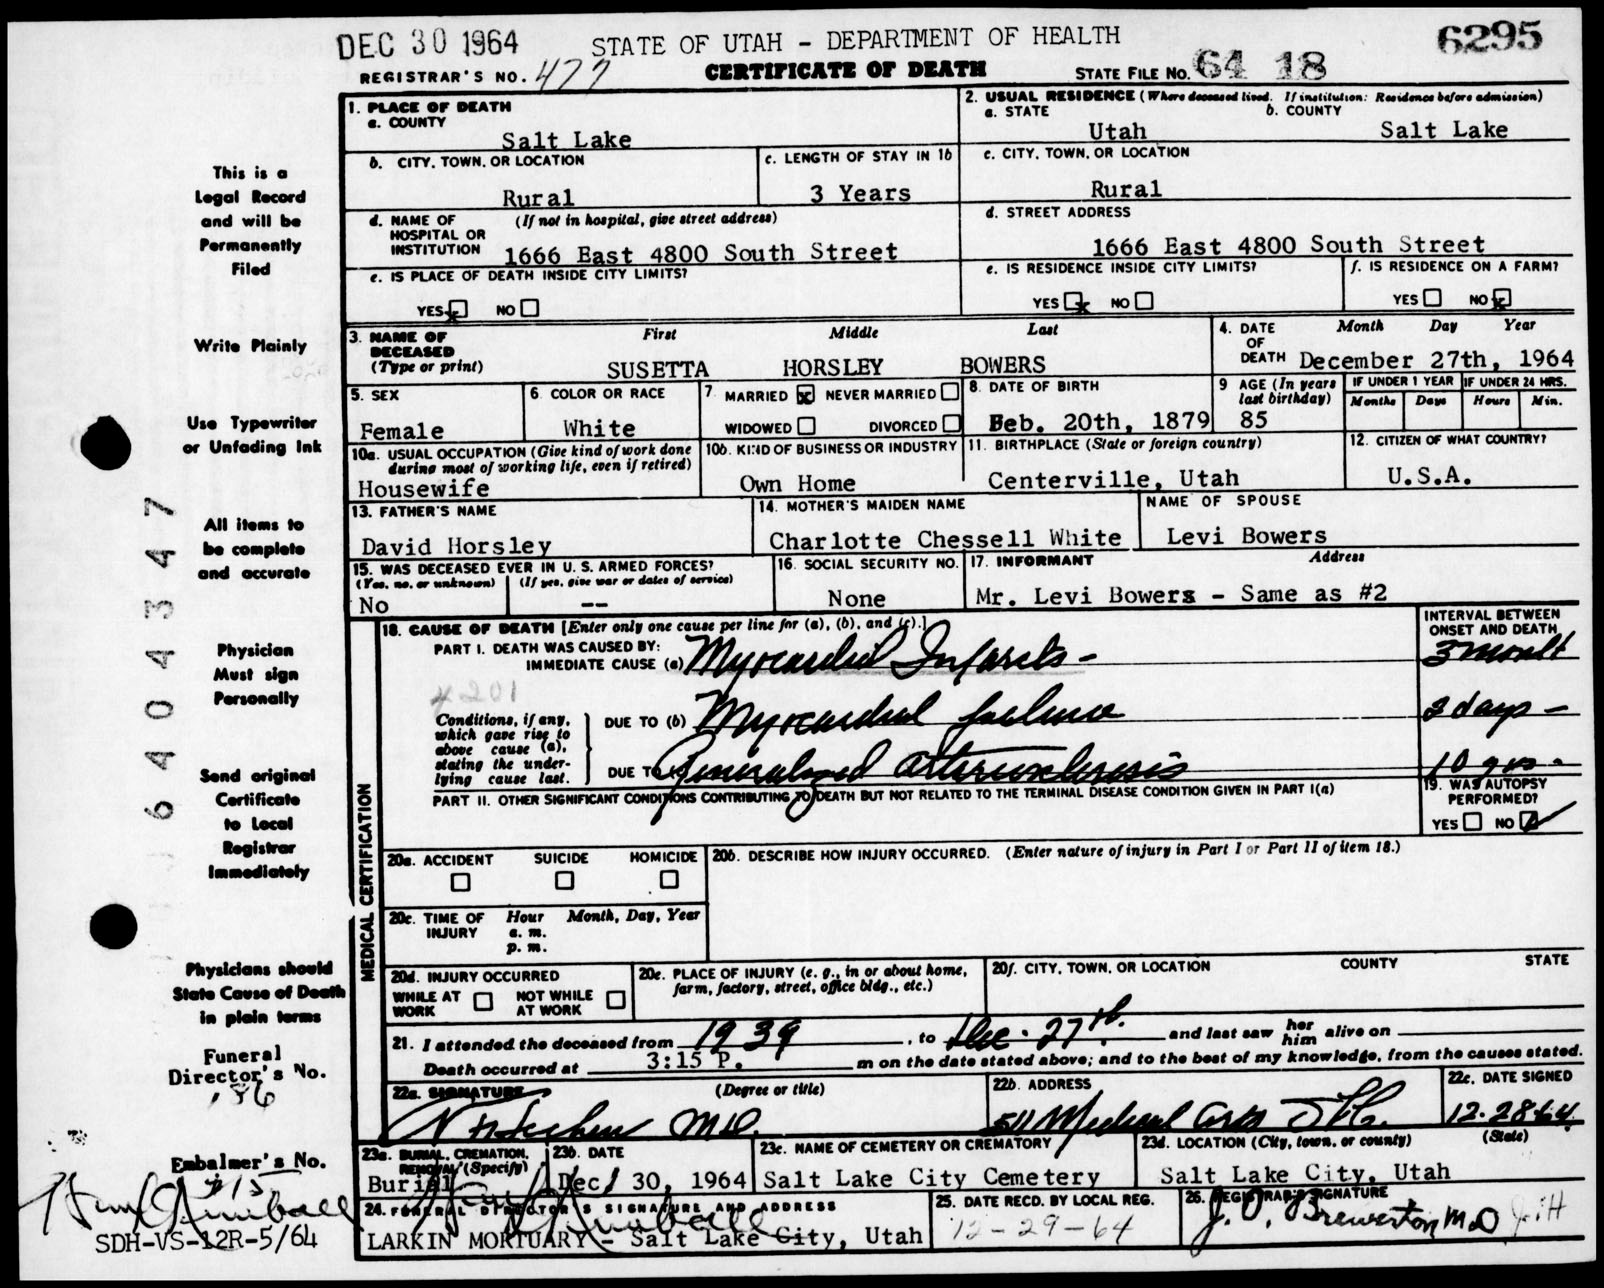 DEC 30 1964
STATE OF UTAH - DEPARTMENT OF HEALTH
6295
REGISTRAR'S NO. 477
CERTIFICATE OF DEATH
STATE FILE NO. 64 18
1. PLACE OF DEATH
a. COUNTY
Salt Lake
2. USUAL RESIDENCE (Where deceased lived. If institution: Residence before admission)
a. STATE
Utah
b. COUNTY
Salt Lake
b. CITY, TOWN, OR LOCATION
Rural
c. LENGTH OF STAY IN 1b
3 Years
c. CITY, TOWN, OR LOCATION
Rural
d. NAME OF HOSPITAL OR INSTITUTION
(If not in hospital, give street address)
1666 East 4800 South Street
d. STREET ADDRESS
1666 East 4800 South Street
e. IS PLACE OF DEATH INSIDE CITY LIMITS?
YES x NO
e. IS RESIDENCE INSIDE CITY LIMITS?
YES x NO
f. IS RESIDENCE ON A FARM?
YES NO x
3. NAME OF DECEASED
(Type or print)
First Middle Last
SUSETTA HORSLEY BOWERS
4. DATE OF DEATH
Month Day Year
December 27th, 1964
5. SEX
Female
6. COLOR OR RACE
White
7. MARRIED x NEVER MARRIED
WIDOWED DIVORCED
8. DATE OF BIRTH
Feb. 20th, 1879
9 AGE (In years last birthday)
85
IF UNDER 1 YEAR
Months Days
IF UNDER 24 HRS.
Hours Min.
10a. USUAL OCCUPATION (Give kind of work done during most of working life, even if retired)
Housewife
10b. KIND OF BUSINESS OR INDUSTRY
Own Home
11. BIRTHPLACE (State or foreign country)
Centerville, Utah
12. CITIZEN OF WHAT COUNTRY?
U.S.A.
13. FATHER'S NAME
David Horsley
14. MOTHER'S MAIDEN NAME
Charlotte Chessell White
NAME OF SPOUSE
Levi Bowers
15. WAS DECEASED EVER IN U. S. ARMED FORCES?
(Yes, no, or unknown) (If yes, give war or dates of service)
No --
16. SOCIAL SECURITY NO.
None
17. INFORMANT Address
Mr. Levi Bowers - Same as #2
MEDICAL CERTIFICATION
18. CAUSE OF DEATH [Enter only one cause per line for (a), (b), and (c).]
INTERVAL BETWEEN ONSET AND DEATH
PART I. DEATH WAS CAUSED BY:
IMMEDIATE CAUSE (a) Myocardial Infarcts -
3 month
4201
Conditions, if any, which gave rise to above cause (a), stating the underlying cause last.
DUE TO (b) Myocardial failure
2 days -
DUE TO (c) Generalized arteriosclerosis
10 yrs -
PART II. OTHER SIGNIFICANT CONDITIONS CONTRIBUTING TO DEATH BUT NOT RELATED TO THE TERMINAL DISEASE CONDITION GIVEN IN PART I(a)
19. WAS AUTOPSY PERFORMED?
YES NO
20a. ACCIDENT SUICIDE HOMICIDE
20b. DESCRIBE HOW INJURY OCCURRED. (Enter nature of injury in Part I or Part II of item 18.)
20c. TIME OF INJURY
Hour Month, Day, Year
a. m.
p. m.
20d. INJURY OCCURRED
WHILE AT WORK NOT WHILE AT WORK
20e. PLACE OF INJURY (e. g., in or about home, farm, factory, street, office bldg., etc.)
20f. CITY, TOWN, OR LOCATION COUNTY STATE
21. I attended the deceased from 1939, to Dec. 27th. and last saw her him alive on
Death occurred at 3:15 P. m on the date stated above; and to the best of my knowledge, from the causes stated.
22a. SIGNATURE (Degree or title)
MD.
22b. ADDRESS
511 Medical Arts SLC.
22c. DATE SIGNED
12-28-64
23a. BURIAL, CREMATION, REMOVAL (Specify)
Burial
23b. DATE
Dec. 30, 1964
23c. NAME OF CEMETERY OR CREMATORY
Salt Lake City Cemetery
23d. LOCATION (City, town, or county) (State)
Salt Lake City, Utah
24. FUNERAL DIRECTOR'S SIGNATURE AND ADDRESS
LARKIN MORTUARY - Salt Lake City, Utah
25. DATE RECD. BY LOCAL REG.
12-29-64
26. REGISTRAR'S SIGNATURE
J. D. Brewerton MD
This is a
Legal Record
and will be
Permanently
Filed
Write Plainly
Use Typewriter
or Unfading Ink
All items to
be complete
and accurate
Physician
Must sign
Personally
Send original
Certificate
to Local
Registrar
Immediately
Physicians should
State Cause of Death
in plain terms
Funeral
Director's No.
Embalmer's No.
SDH-VS-12R-5/64
6404347